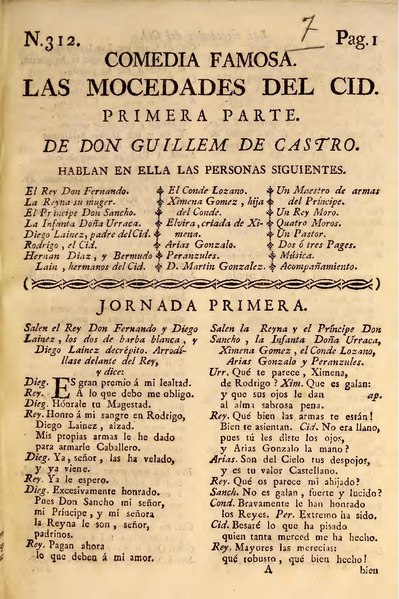 N.312.
7
Pag.1
COMEDIA FAMOSA.
LAS MOCEDADES DEL CID.
PRIMERA PARTE.
DE DON GUILLEM DE CASTRO.
HABLAN EN ELLA LAS PERSONAS SIGUIENTES.
El Rey Don Fernando.
La Reyna su muger.
El Príncipe Don Sancho.
La Infanta Doña Urraca.
Diego Lainez, padre del Cid.
Rodrigo, el Cid.
Hernan Diaz, y Bermudo
Lain, hermanos del Cid.
El Conde Lozano.
Ximena Gomez, hija
del Conde.
Elvira, criada de Xi-
mena.
Arias Gonzalo.
Peranzules.
D. Martin Gonzalez.
Un Maestro de armas
del Príncipe.
Un Rey Moro.
Quatro Moros.
Un Pastor.
Dos ó tres Pages.
Música.
Acompañamiento.
JORNADA PRIMERA.
Salen el Rey Don Fernando y Diego
Lainez, los dos de barba blanca, y
Diego Lainez decrépito. Arrodí-
llase delante del Rey,
y dice:
Dieg. ES gran premio á mi lealtad.
Rey. A lo que debo me obligo.
Dieg. Hónrale tu Magestad.
Rey. Honro á mi sangre en Rodrigo,
Diego Lainez, alzad.
Mis propias armas le he dado
para armarle Caballero.
Dieg. Ya, señor, las ha velado,
y ya viene.
Rey. Ya le espero.
Dieg. Excesivamente honrado.
Pues Don Sancho mi señor,
mi Príncipe, y mi señora
la Reyna le son, señor,
padrinos.
Rey. Pagan ahora
lo que deben á mi amor.
Salen la Reyna y el Príncipe Don
Sancho, la Infanta Doña Urraca,
Ximena Gomez, el Conde Lozano,
Arias Gonzalo y Peranzules.
Urr. Qué te parece, Ximena,
de Rodrigo? Xim. Que es galan:
y que sus ojos le dan ap.
al alma sabrosa pena.
Rey. Qué bien las armas te están!
Bien te asientan. Cid. No era llano,
pues tú les diste los ojos,
y Arias Gonzalo la mano?
Arias. Son del Cielo tus despojos,
y es tu valor Castellano.
Rey. Qué os parece mi ahijado?
Sanch. No es galan, fuerte y lucido?
Cond. Bravamente le han honrado
los Reyes. Per. Extremo ha sido.
Cid. Besaré lo que ha pisado
quien tanta merced me ha hecho.
Rey. Mayores las merecias:
qué robusto, qué bien hecho!
A
bien